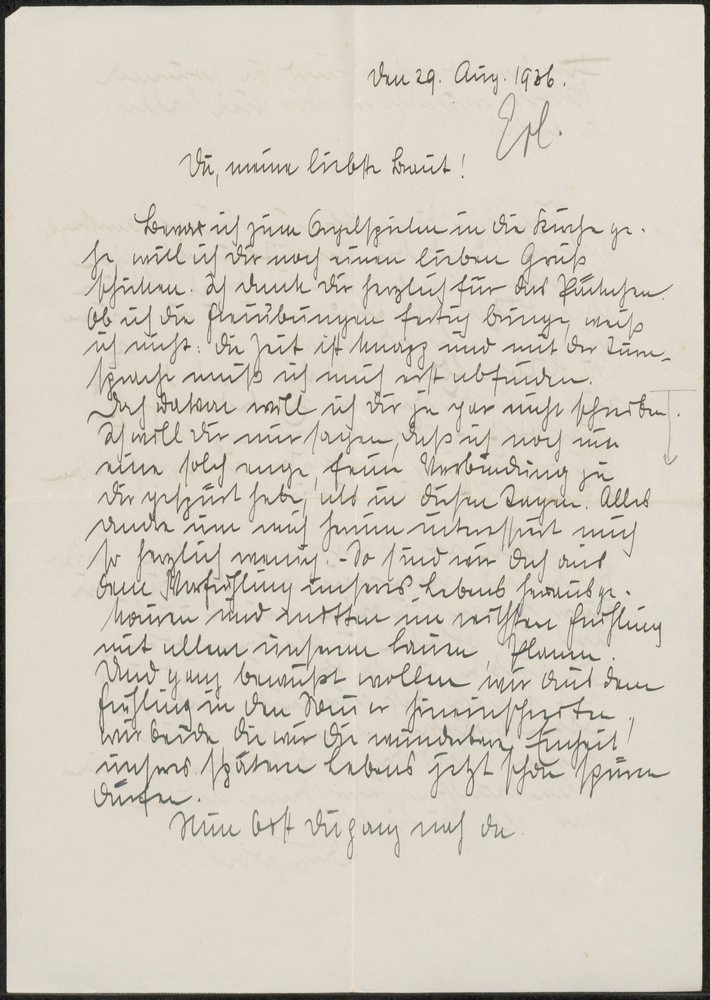 Den 29. Aug. 1936.
Erl.
Du, meine liebste Braut!
Bevor ich zum Orgelspielen in die Kirche ge-
he, will ich Dir noch einen lieben Gruß
schicken. Ich danke Dir herzlich für das Päckchen.
Ob ich die Freiübungen fertig bringe, weiß
ich nicht: die Zeit ist knapp und mit der Turn-
sprache muß ich mich erst abfinden.
Doch davon will ich Dir ja gar nicht schreiben.
Ich will Dir nur sagen, daß ich noch nie
eine solch enge, feine Verbindung zu
Dir gespürt habe, als in diesen Tagen. Alles
andre um mich herum interessiert mich
so herzlich wenig. - So sind wir doch aus
dem Vorfrühling unseres Lebens herausge-
kommen und mitten im Frühling
mit allen unseren Plänen.
Und ganz bewußt wollen wir aus dem
Frühling in den Sommer hineinschreiten,
wir beide, die wir die wunderbare Einheit
unseres späteren Lebens jetzt schon spüren
dürfen.
Nun bist Du ganz nah da.